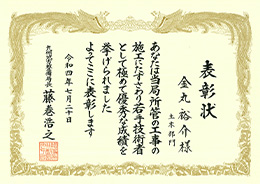 表彰状
土木部門
金丸 裕介 様
あなたは当局所管の工事の
施工にたずさわり若手技術者
として極めて優秀な成績を
挙げられました
よってここに表彰します
令和四年七月二十日
九州地方整備局長
藤巻浩之